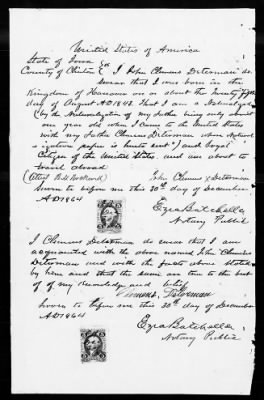 United States of America
State of Iowa
County of Clinton } I John Clemens Determan do
swear that I was born in the
Kingdom of Hanover on or about the twenty
day of August AD 1843. That I am a Naturalized
(by the Naturalization of my Father being only about
one year old when I came to the United States
with my Father Clemens Determan whose Natural
ization paper is hereto sent) and loyal
Citizen of the United States and am about to
travel abroad
John Clemens x Determan
Sworn to before me this 30th day of December
AD 1864
Ezra Batcheller
Notary Public
I Clemens Determan do swear that I am
acquainted with the above named John Clemens
Determan and with the facts above stated
by him and that the same are true to the best
of my Knowledge and belief
Clemens Determan
Sworn to before me this 30th day of December
AD 1864
Ezra Batcheller
Notary Public